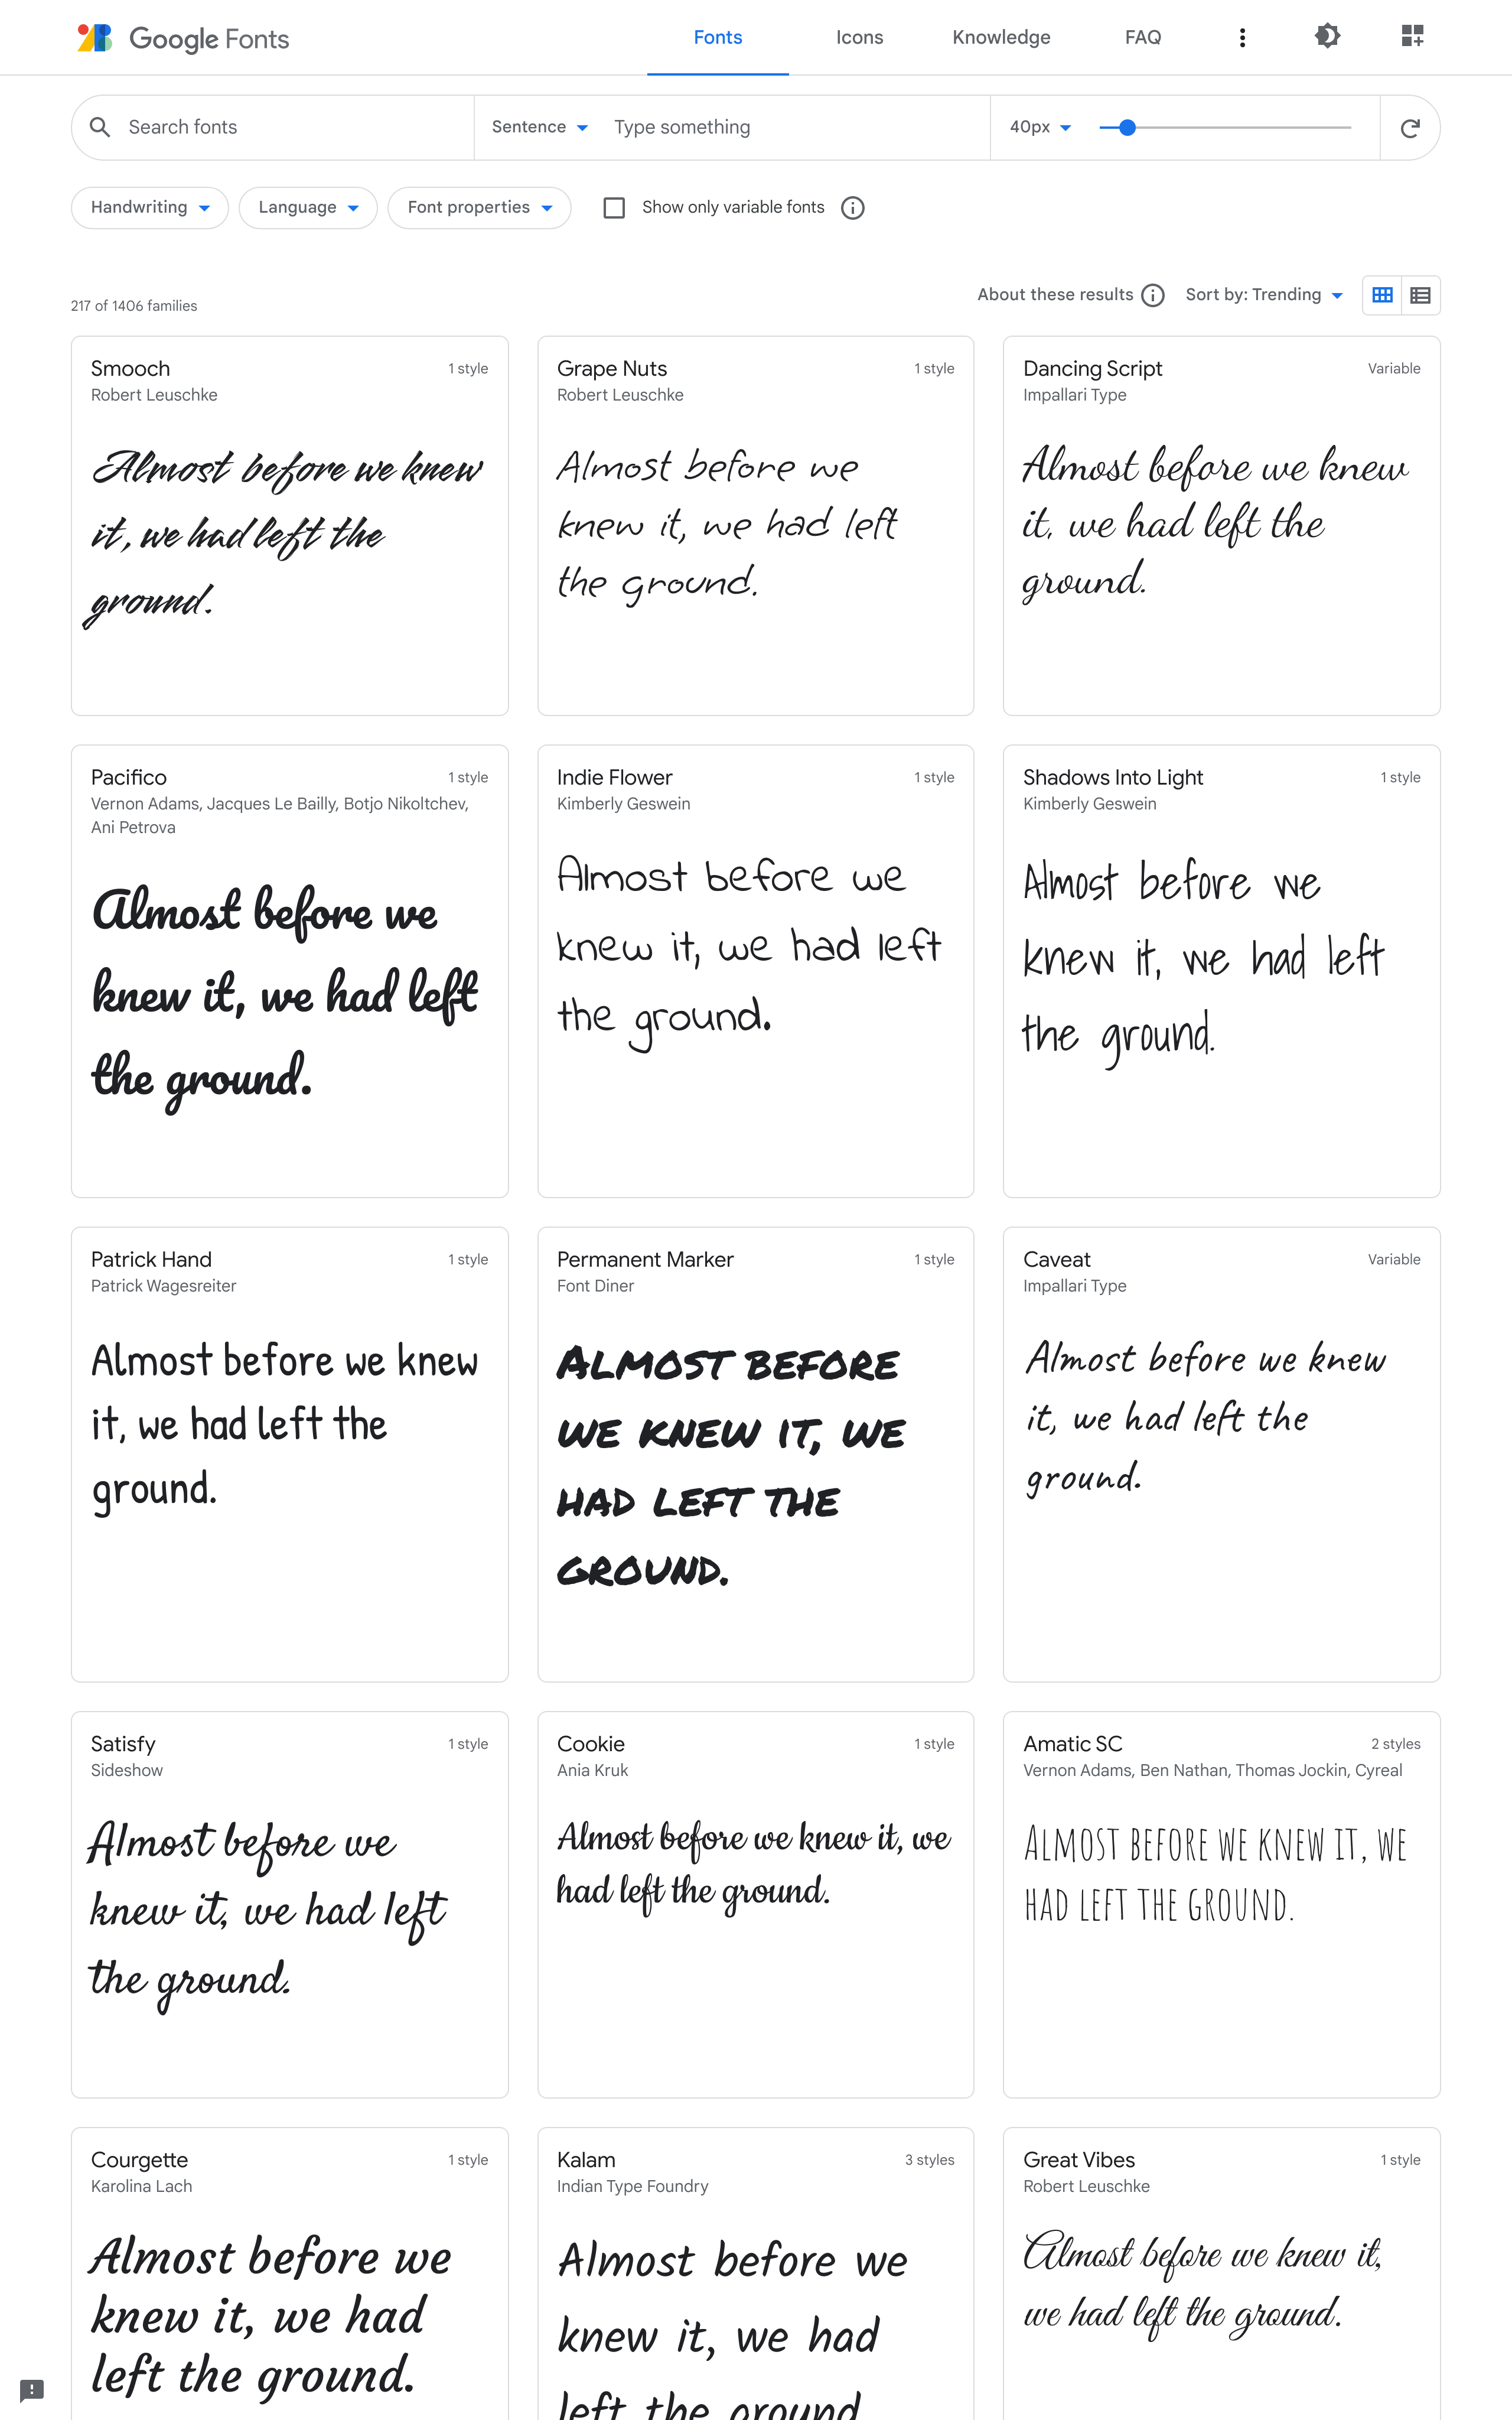 Google Fonts
Fonts
Icons
Knowledge
FAQ
Search fonts
Sentence
Type something
40px
Handwriting
Language
Font properties
Show only variable fonts
217 of 1406 families
About these results
Sort by: Trending
Smooch
1 style
Robert Leuschke
Almost before we knew
it, we had left the
ground.
Grape Nuts
1 style
Robert Leuschke
Almost before we
knew it, we had left
the ground.
Dancing Script
Variable
Impallari Type
Almost before we knew
it, we had left the
ground.
Pacifico
1 style
Vernon Adams, Jacques Le Bailly, Botjo Nikoltchev,
Ani Petrova
Almost before we
knew it, we had left
the ground.
Indie Flower
1 style
Kimberly Geswein
Almost before we
knew it, we had left
the ground.
Shadows Into Light
1 style
Kimberly Geswein
Almost before we
knew it, we had left
the ground.
Patrick Hand
1 style
Patrick Wagesreiter
Almost before we knew
it, we had left the
ground.
Permanent Marker
1 style
Font Diner
ALMOST BEFORE
WE KNEW IT, WE
HAD LEFT THE
GROUND.
Caveat
Variable
Impallari Type
Almost before we knew
it, we had left the
ground.
Satisfy
1 style
Sideshow
Almost before we
knew it, we had left
the ground.
Cookie
1 style
Ania Kruk
Almost before we knew it, we
had left the ground.
Amatic SC
2 styles
Vernon Adams, Ben Nathan, Thomas Jockin, Cyreal
ALMOST BEFORE WE KNEW IT, WE
HAD LEFT THE GROUND.
Courgette
1 style
Karolina Lach
Almost before we
knew it, we had
left the ground.
Kalam
3 styles
Indian Type Foundry
Almost before we
knew it, we had
left the ground
Great Vibes
1 style
Robert Leuschke
Almost before we knew it,
we had left the ground.